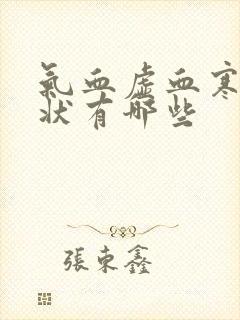 氣血虛血寒
狀有哪些
張東鑫